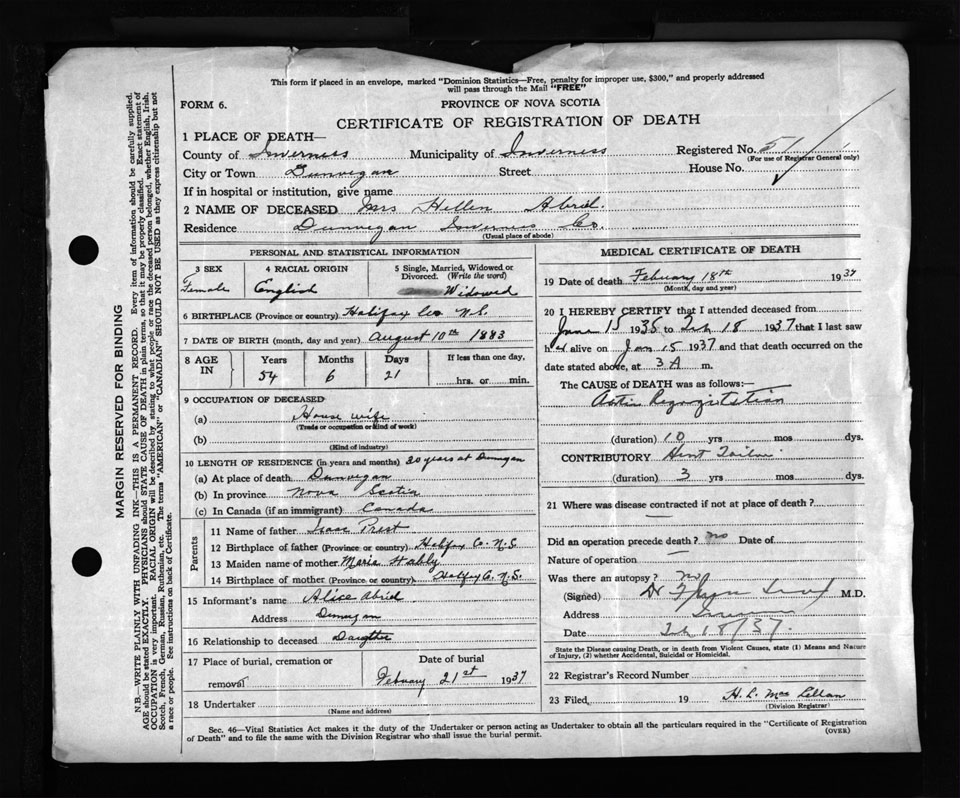 This form if placed in an envelope, marked "Dominion Statistics—Free, penalty for improper use, $300," and properly addressed
will pass through the Mail "FREE"
FORM 6.
PROVINCE OF NOVA SCOTIA
CERTIFICATE OF REGISTRATION OF DEATH
1 PLACE OF DEATH—
County of Inverness Municipality of Inverness Registered No. 51
(For use of Registrar General only)
City or Town Dunvegan Street House No.
If in hospital or institution, give name
2 NAME OF DECEASED Mrs Hellen Abriel.
Residence Dunvegan Inverness Co.
(Usual place of abode)
PERSONAL AND STATISTICAL INFORMATION
3 SEX 4 RACIAL ORIGIN 5 Single, Married, Widowed or
Divorced. (Write the word)
Female English Widowed
6 BIRTHPLACE (Province or country) Halifax Co N.S.
7 DATE OF BIRTH (month, day and year) August 10th 1883
8 AGE IN Years Months Days If less than one day,
54 6 21 hrs. or min.
9 OCCUPATION OF DECEASED
(a) House wife
(Trade or occupation or kind of work)
(b)
(Kind of industry)
10 LENGTH OF RESIDENCE (in years and months) 20 years at Dunvegan
(a) At place of death Dunvegan
(b) In province Nova Scotia
(c) In Canada (if an immigrant) Canada
Parents
11 Name of father Isaac Prest
12 Birthplace of father (Province or country) Halifax Co. N.S
13 Maiden name of mother Maria
14 Birthplace of mother (Province or country) Halifax Co. N.S.
15 Informant's name Alice Abriel
Address Dunvegan
16 Relationship to deceased Daughter
17 Place of burial, cremation or Date of burial
removal February 21st 1937
18 Undertaker
(Name and address)
MEDICAL CERTIFICATE OF DEATH
19 Date of death February 18th 1937
(Month, day and year)
20 I HEREBY CERTIFY that I attended deceased from
June 15 1936 to Feb 18 1937 that I last saw
her alive on Jan 15 1937 and that death occurred on the
date stated above, at 3 A m.
The CAUSE of DEATH was as follows:—
Aortic Regurgitation
(duration) 10 yrs mos dys.
CONTRIBUTORY Heart Failure
(duration) 3 yrs mos dys.
21 Where was disease contracted if not at place of death?
Did an operation precede death? no Date of
Nature of operation
Was there an autopsy? no
(Signed) Dr M.D.
Address Inverness
Date Feb 18/37.
State the Disease causing Death, or in death from Violent Causes, state (1) Means and Nature
of Injury, (2) whether Accidental, Suicidal or Homicidal.
22 Registrar's Record Number
23 Filed, 19 H. L. MacLellan
(Division Registrar)
Sec. 46—Vital Statistics Act makes it the duty of the Undertaker or person acting as Undertaker to obtain all the particulars required in the "Certificate of Registration
of Death" and to file the same with the Division Registrar who shall issue the burial permit.
(OVER)
MARGIN RESERVED FOR BINDING
N.B.—WRITE PLAINLY WITH UNFADING INK—THIS IS A PERMANENT RECORD. Every item of information should be carefully supplied.
AGE should be stated EXACTLY. PHYSICIANS should STATE CAUSE OF DEATH in plain terms, so that it may be properly classified. Exact statement of
OCCUPATION is very important. RACIAL ORIGIN will be described by stating to what people or race the deceased person belonged, whether English, Irish,
Scotch, French, German, Russian, Ruthenian, etc. The terms "AMERICAN" or "CANADIAN" SHOULD NOT BE USED as they express citizenship but not
a race or people. See instructions on back of Certificate.